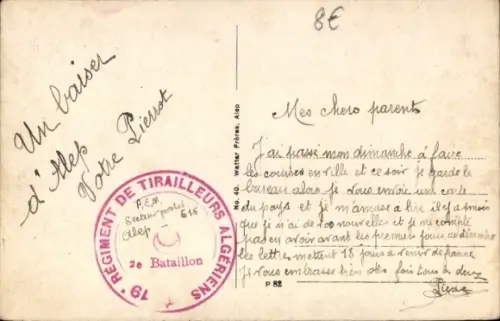 8€
Un baiser
d'Alep
Votre Pierrot
19e RÉGIMENT DE TIRAILLEURS ALGÉRIENS
Secteur postal
616
Alep
2e Bataillon
No. 40. Wattar Frères, Alep
Mes chers parents
J'ai passé mon dimanche à faire
les courses en ville et ce soir je garde le
bureau alors je vous envoie une carte
du pays et je m'amuse a lire il y a
que je n'ai de vos nouvelles et je ne compte
pas en avoir avant les premiers jours de
les lettres mettent 18 jours a venir de france
Je vous embrasse très des fois tous les deux
Pierre
P 82